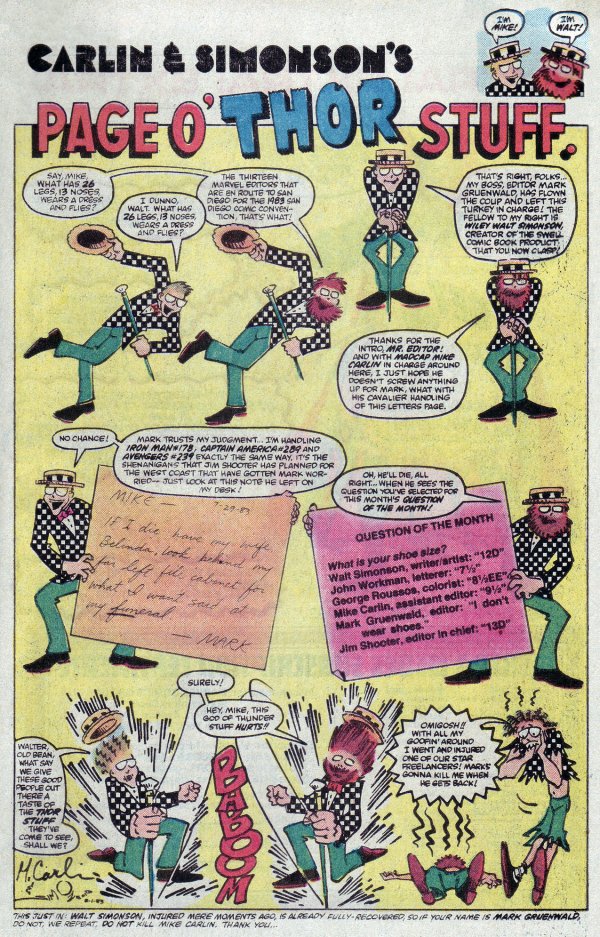 I'M
MIKE!
I'M
WALT!
CARLIN & SIMONSON'S
PAGE O' THOR STUFF.
SAY, MIKE,
WHAT HAS 26
LEGS, 13 NOSES,
WEARS A DRESS
AND FLIES?
I DUNNO,
WALT. WHAT HAS
26 LEGS, 13 NOSES,
WEARS A DRESS
AND FLIES?
THE THIRTEEN
MARVEL EDITORS THAT
ARE EN ROUTE TO SAN
DIEGO FOR THE 1983 SAN
DIEGO COMIC CONVEN-
TION, THAT'S WHAT!
THAT'S RIGHT, FOLKS...
MY BOSS, EDITOR MARK
GRUENWALD, HAS FLOWN
THE COUP AND LEFT THIS
TURKEY IN CHARGE! THE
FELLOW TO MY RIGHT IS
WILEY WALT SIMONSON,
CREATOR OF THE SWELL
COMIC BOOK PRODUCT
THAT YOU NOW CLASP!
THANKS FOR THE
INTRO, MR. EDITOR!
AND WITH MADCAP MIKE
CARLIN IN CHARGE AROUND
HERE, I JUST HOPE HE
DOESN'T SCREW ANYTHING
UP FOR MARK, WHAT WITH
HIS CAVALIER HANDLING
OF THIS LETTERS PAGE.
NO CHANCE!
MARK TRUSTS MY JUDGMENT... I'M HANDLING
IRON MAN #178, CAPTAIN AMERICA #289 AND
AVENGERS #239 EXACTLY THE SAME WAY. IT'S THE
SHENANIGANS THAT JIM SHOOTER HAS PLANNED FOR
THE WEST COAST THAT HAVE GOTTEN MARK WOR-
RIED-- JUST LOOK AT THIS NOTE HE LEFT ON
MY DESK!
OH, HE'LL DIE, ALL
RIGHT... WHEN HE SEES THE
QUESTION YOU'VE SELECTED FOR
THIS MONTH'S QUESTION
OF THE MONTH!
MIKE 7-29-83
IF I die have my wife
Belinda, look behind my
far left file cabinet for
what I want said at
my funeral
— MARK
QUESTION OF THE MONTH
What is your shoe size?
Walt Simonson, writer/artist: "12D"
John Workman, letterer: "7½"
George Roussos, colorist: "8½EE"
Mike Carlin, assistant editor: "9½"
Mark Gruenwald, editor: "I don't
wear shoes."
Jim Shooter, editor in chief: "13D"
WALTER,
OLD BEAN,
WHAT SAY
WE GIVE
THESE GOOD
PEOPLE OUT
THERE A
TASTE OF
THE THOR
STUFF
THEY'VE
COME TO SEE,
SHALL WE?
SURELY!
HEY, MIKE, THIS
GOD OF THUNDER
STUFF HURTS!!
BADOOM
OMIGOSH!!
WITH ALL MY
GOOFIN' AROUND
I WENT AND INJURED
ONE OF OUR STAR
FREELANCERS! MARK'S
GONNA KILL ME WHEN
HE GETS BACK!
M. Carlin
&
8-1-83
THIS JUST IN: WALT SIMONSON, INJURED MERE MOMENTS AGO, IS ALREADY FULLY-RECOVERED, SO IF YOUR NAME IS MARK GRUENWALD,
DO NOT, WE REPEAT, DO NOT KILL MIKE CARLIN. THANK YOU...